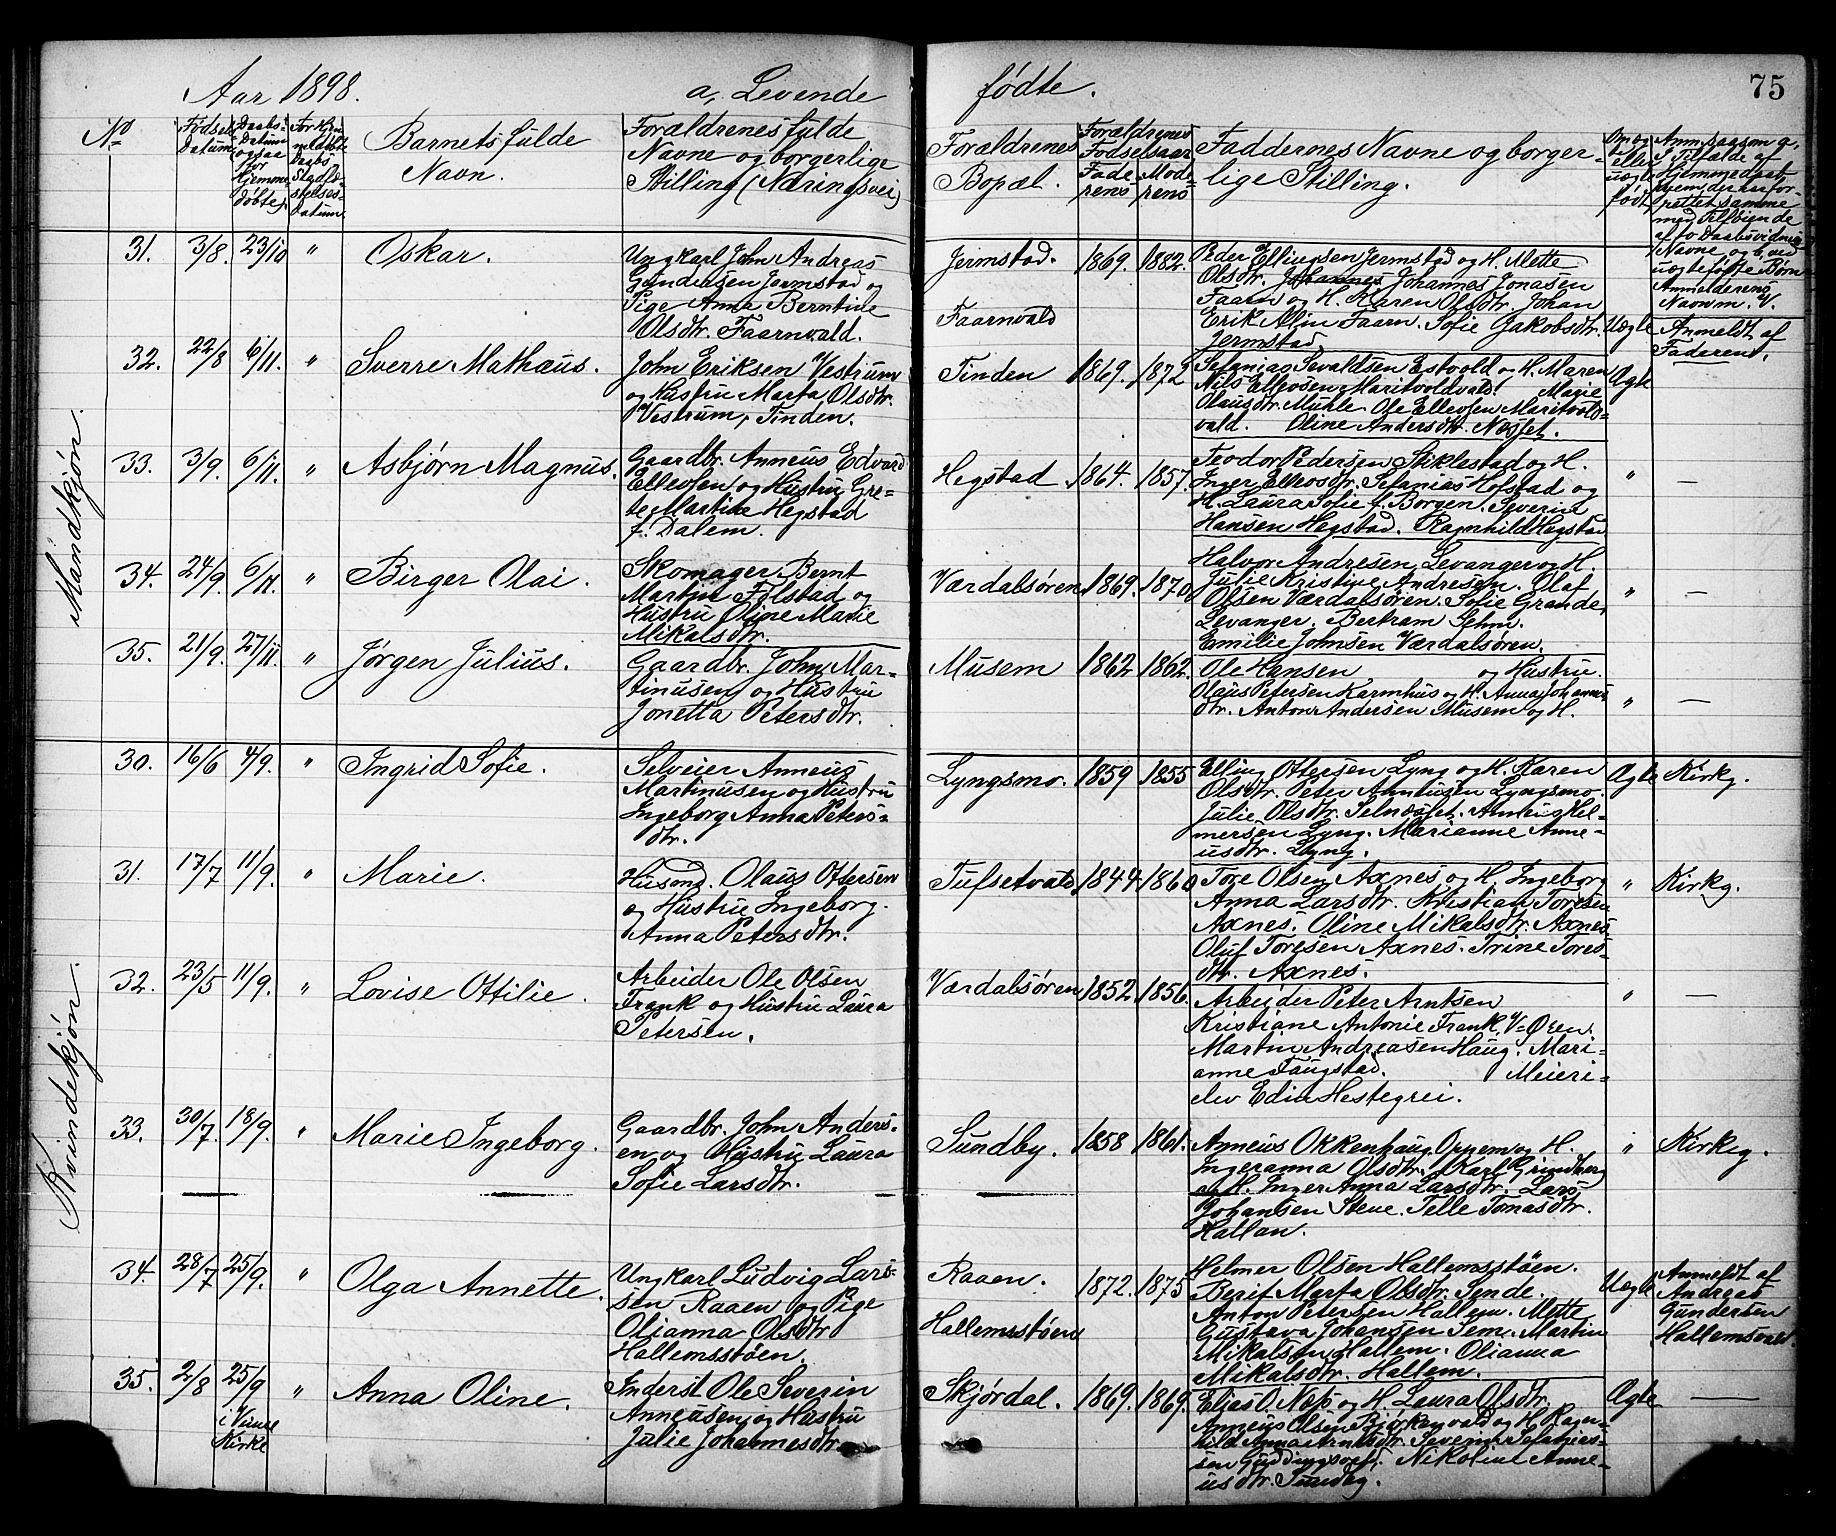 Aar 1898. a, Levende fødte. 75
No
Fødsels Datum
Daabs-Datum ogsaa for Hjemme døbte
For Hjemmedøbte Daabs Stadfæstelses-Datum
Barnets fulde
Navn.
Forældrenes fulde
Navne og borgerlige
Stilling (Næringsvei)
Forældrenes
Bopæl.
Forældrenes
Fødselsaar
Faderens
Moderens
Faddernes Navne og borger-
lige Stilling.
Om ægte
eller
uægte
født
Anm. saasom a,
I Tilfælde af
Hjemmedaab
hvem der har for-
rettet samme
med Tilføiende
af to Daabsvidners
Navne og b, ved
uægtefødte Børn
Anmelderens
Navn m. V.
Mandkjøn.
31. 3/8. 23/10 " Oskar.
Ungkarl John Andreas
Gundersen Jermstad og
Pige Anna Berntine
Olsdtr. Faarnvald.
Jermstad.
Faarnvald
1869. 1882.
Peder Ellingsen Jermstad og H. Mette
Olsdtr. Johannes Johannes Jonasen
Faarn og H. Karen Olsdtr. Johan
Erik Alin Faarn. Sofie Jakobsdtr.
Jermstad
Uægte
Anmeldt af
Faderen.
32. 22/8 6/11. " Sverre Mathæus.
John Eriksen Vestrum
og Hustru Marta Olsdtr.
Vestrum, Tinden.
Tinden 1869. 1872
Sefanias Sevaldsen Estvold og H. Maren
Nils Ellevsen Maritvoldvald. Marie
Olausdtr. Mühle Ole Ellevsen Maritvolds-
vald. Oline Andersdtr. Næsset.
Ægte —
33. 3/9. 6/11. " Asbjørn Magnus.
Gaardbr. Anneus Edvard
Ellevsen og Hustru Gre-
te Martine Hegstad
f. Dalem.
Hegstad 1864. 1857.
Teodor Pedersen Stiklestad og H.
Inger Ellevsdtr. Sefanias Hofstad og
H. Laura Sofie f. Borgen. Severin
Hansen Hegstad. Ragnhild Hegstad
" —
34. 24/9. 6/11. " Birger Olai.
Skomager Bernt
Martin Følstad og
Hustru Oline Marie
Mikalsdtr.
Værdalsøren. 1869. 1870.
Halvor Andresen Levanger og H.
Julie Kristine Andresen. Olaf
Olsen Værdalsøren. Sofie Grande,
Levanger. Bertram Sehm.
Emilie Johnsen Værdalsøren.
" —
35. 21/9. 27/11. " Jørgen Julius.
Gaardbr. John Mar-
tinusen og Hustru
Jonetta Petersdtr.
Musem 1862 1862.
Ole Hansen og Hustru.
Olaus Petersen Karmhus og H. Anna Johannes
dtr. Anton Andersen Musem og H.
" —
Kvindekjøn.
30. 16/6 4/9. " Ingrid Sofie.
Selveier Anneus
Martinusen og Hustru
Ingeborg Anna Peters-
dtr.
Lyngsmo. 1859 1855
Elling Ottersen Lyng og H. Karen
Olsdtr. Peter Anneusen Lyngsmo.
Julie Olsdtr. Selnæsset. Anneus Hel-
mersen Lyng. Marianne Anne-
usdtr. Lyng.
Ægte Kirkg.
31. 17/7 11/9. " Marie.
Husmd. Olaus Ottersen
og Hustru Ingeborg
Anna Petersdtr.
Tufsetvald 1844. 1860
Tore Olsen Axnes og H. Ingeborg
Anna Larsdtr. Kristian Toresen
Axnes. Oline Mikalsdtr. Axnes.
Oluf Toresen Axnes. Trine Tores-
dtr. Axnes.
" Kirkg.
32. 23/5 11/9. " Lovise Ottilie.
Arbeider Ole Olsen
Frank og Hustru Laura
Petersen.
Værdalsøren 1852. 1856.
Arbeider Peter Arntsen
Kristiane Antonie Frank, V=Øren.
Martin Andreasen Haug. Mari-
anne Faugstad. Meieri-
elev Edin Hestegrei.
" —
33. 30/7. 18/9. " Marie Ingeborg.
Gaardbr. John Anders-
en og Hustru Laura
Sofie Larsdtr.
Sundby. 1858 1861.
Anneus Okkenhaug Oppem og H.
Ingeranna Olsdtr. Karl Grindberg
og H. Inger Anna Larsdtr. Lars
Johansen Stene. Telle Tomasdtr.
Hallan.
" Kirkg.
34. 28/7 25/9. " Olga Annette.
Ungkarl Ludvig Lars-
sen Raaen og Pige
Olianna Olsdtr
Hallemsstøen.
Raaen.
Hallemsstøen
1872. 1875
Helmer Olsen Hallemsstøen.
Berit Marta Olsdtr. Sende.
Anton Petersen Hallem. Mette
Gustava Johansen Sem. Martin
Mikalsen Hallem. Olianna
Mikalsdtr. Hallem.
Uægte
Anmeldt af
Andreas
Gundersen
Hallemsvald.
35. 2/8 25/9 " Anna Oline.
i Vinne
Kirke
Inderst Ole Severin
Anneusen og Hustru
Julie Johannesdtr.
Skjørdal. 1869. 1869.
Elias O. Næss og H. Laura Olsdtr.
Anneus Olsen Birkenvald og H. Ragn-
hild Anna Arntsdtr. Severin Sefanias-
sen Guddingsvald. Nikoline Anne-
usdtr. Sundby.
Ægte —